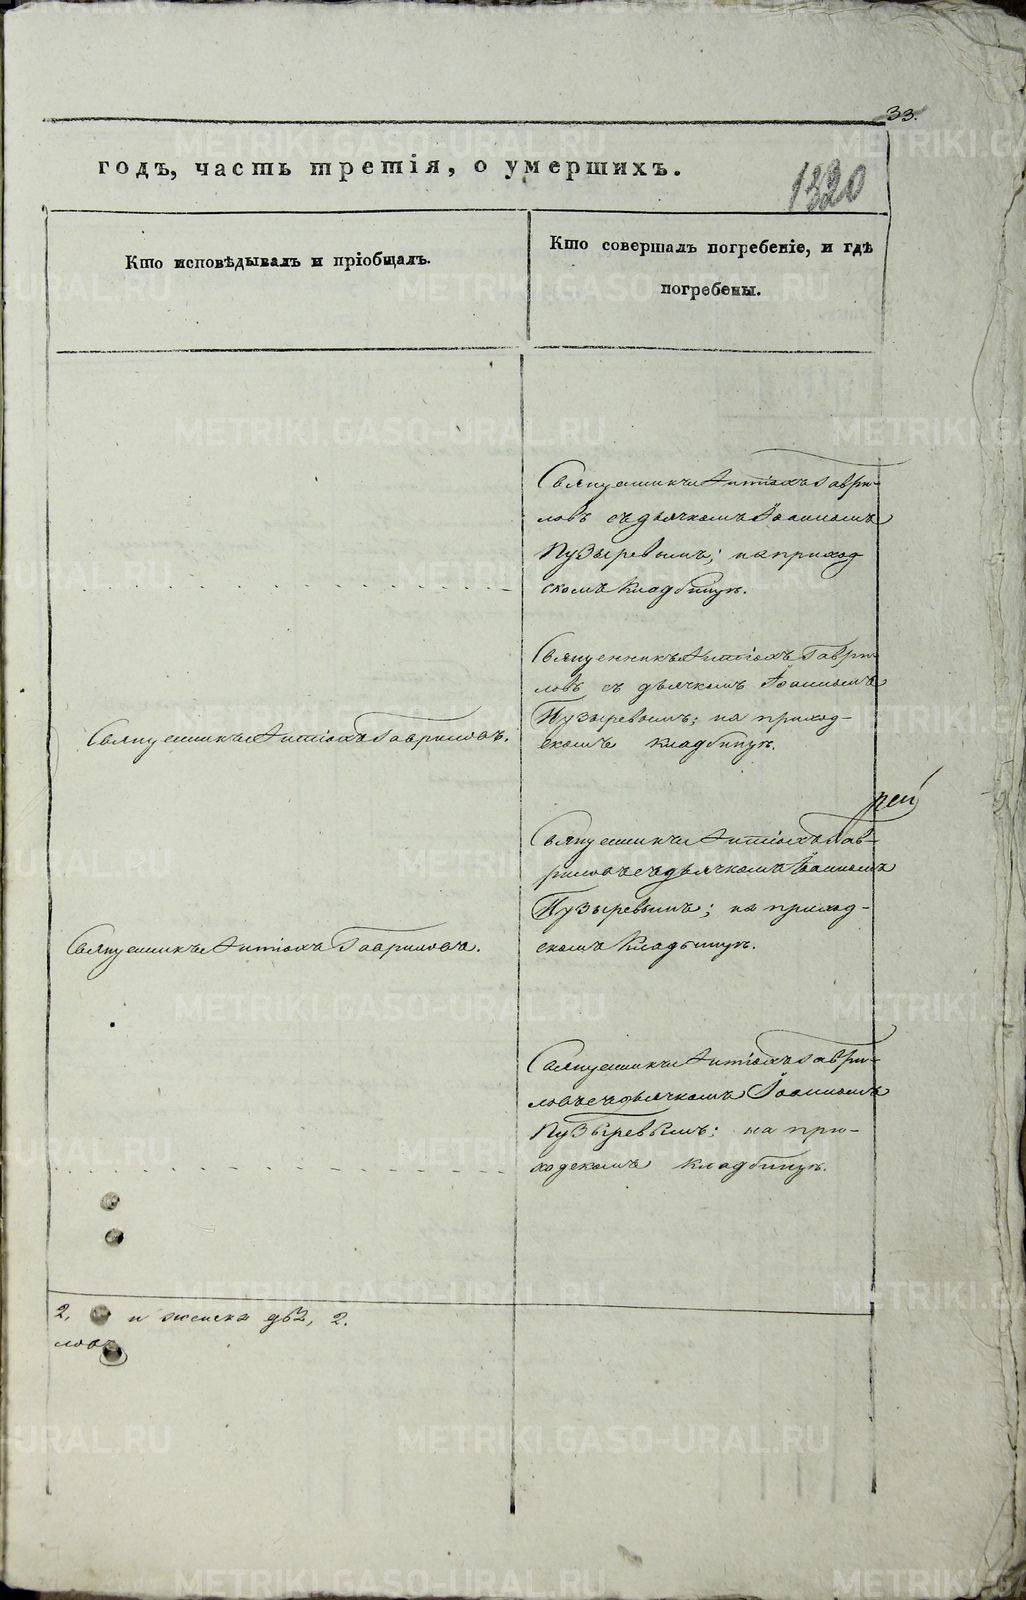 33.
годъ, часть третія, о умершихъ.
1320
Кто исповѣдывалъ и пріобщалъ.
Кто совершалъ погребеніе, и гдѣ
погребены.
Священникъ Антіохъ Гаври-
ловъ съ дьячкомъ Іоанномъ
Пузыревымъ; на приход
скомъ кладбищѣ.
Священникъ Антіохъ Гаври-
ловъ съ дьячкомъ Іоанномъ
Пузыревымъ; на приход-
скомъ кладбищѣ.
Священникъ Антіохъ Гавриловъ.
рей
Священникъ Антіохъ Гав-
риловъ съ дьячкомъ Іоанномъ
Пузыревымъ; на приход-
скомъ кладбищѣ.
Священникъ Антіохъ Гавриловъ.
Священникъ Антіохъ Гаври-
ловъ съ дьячкомъ Іоанномъ
Пузыревымъ; на при-
ходскомъ кладбищѣ.
2, и женска два, 2.
ловъ
METRIKI.GASO-URAL.RU